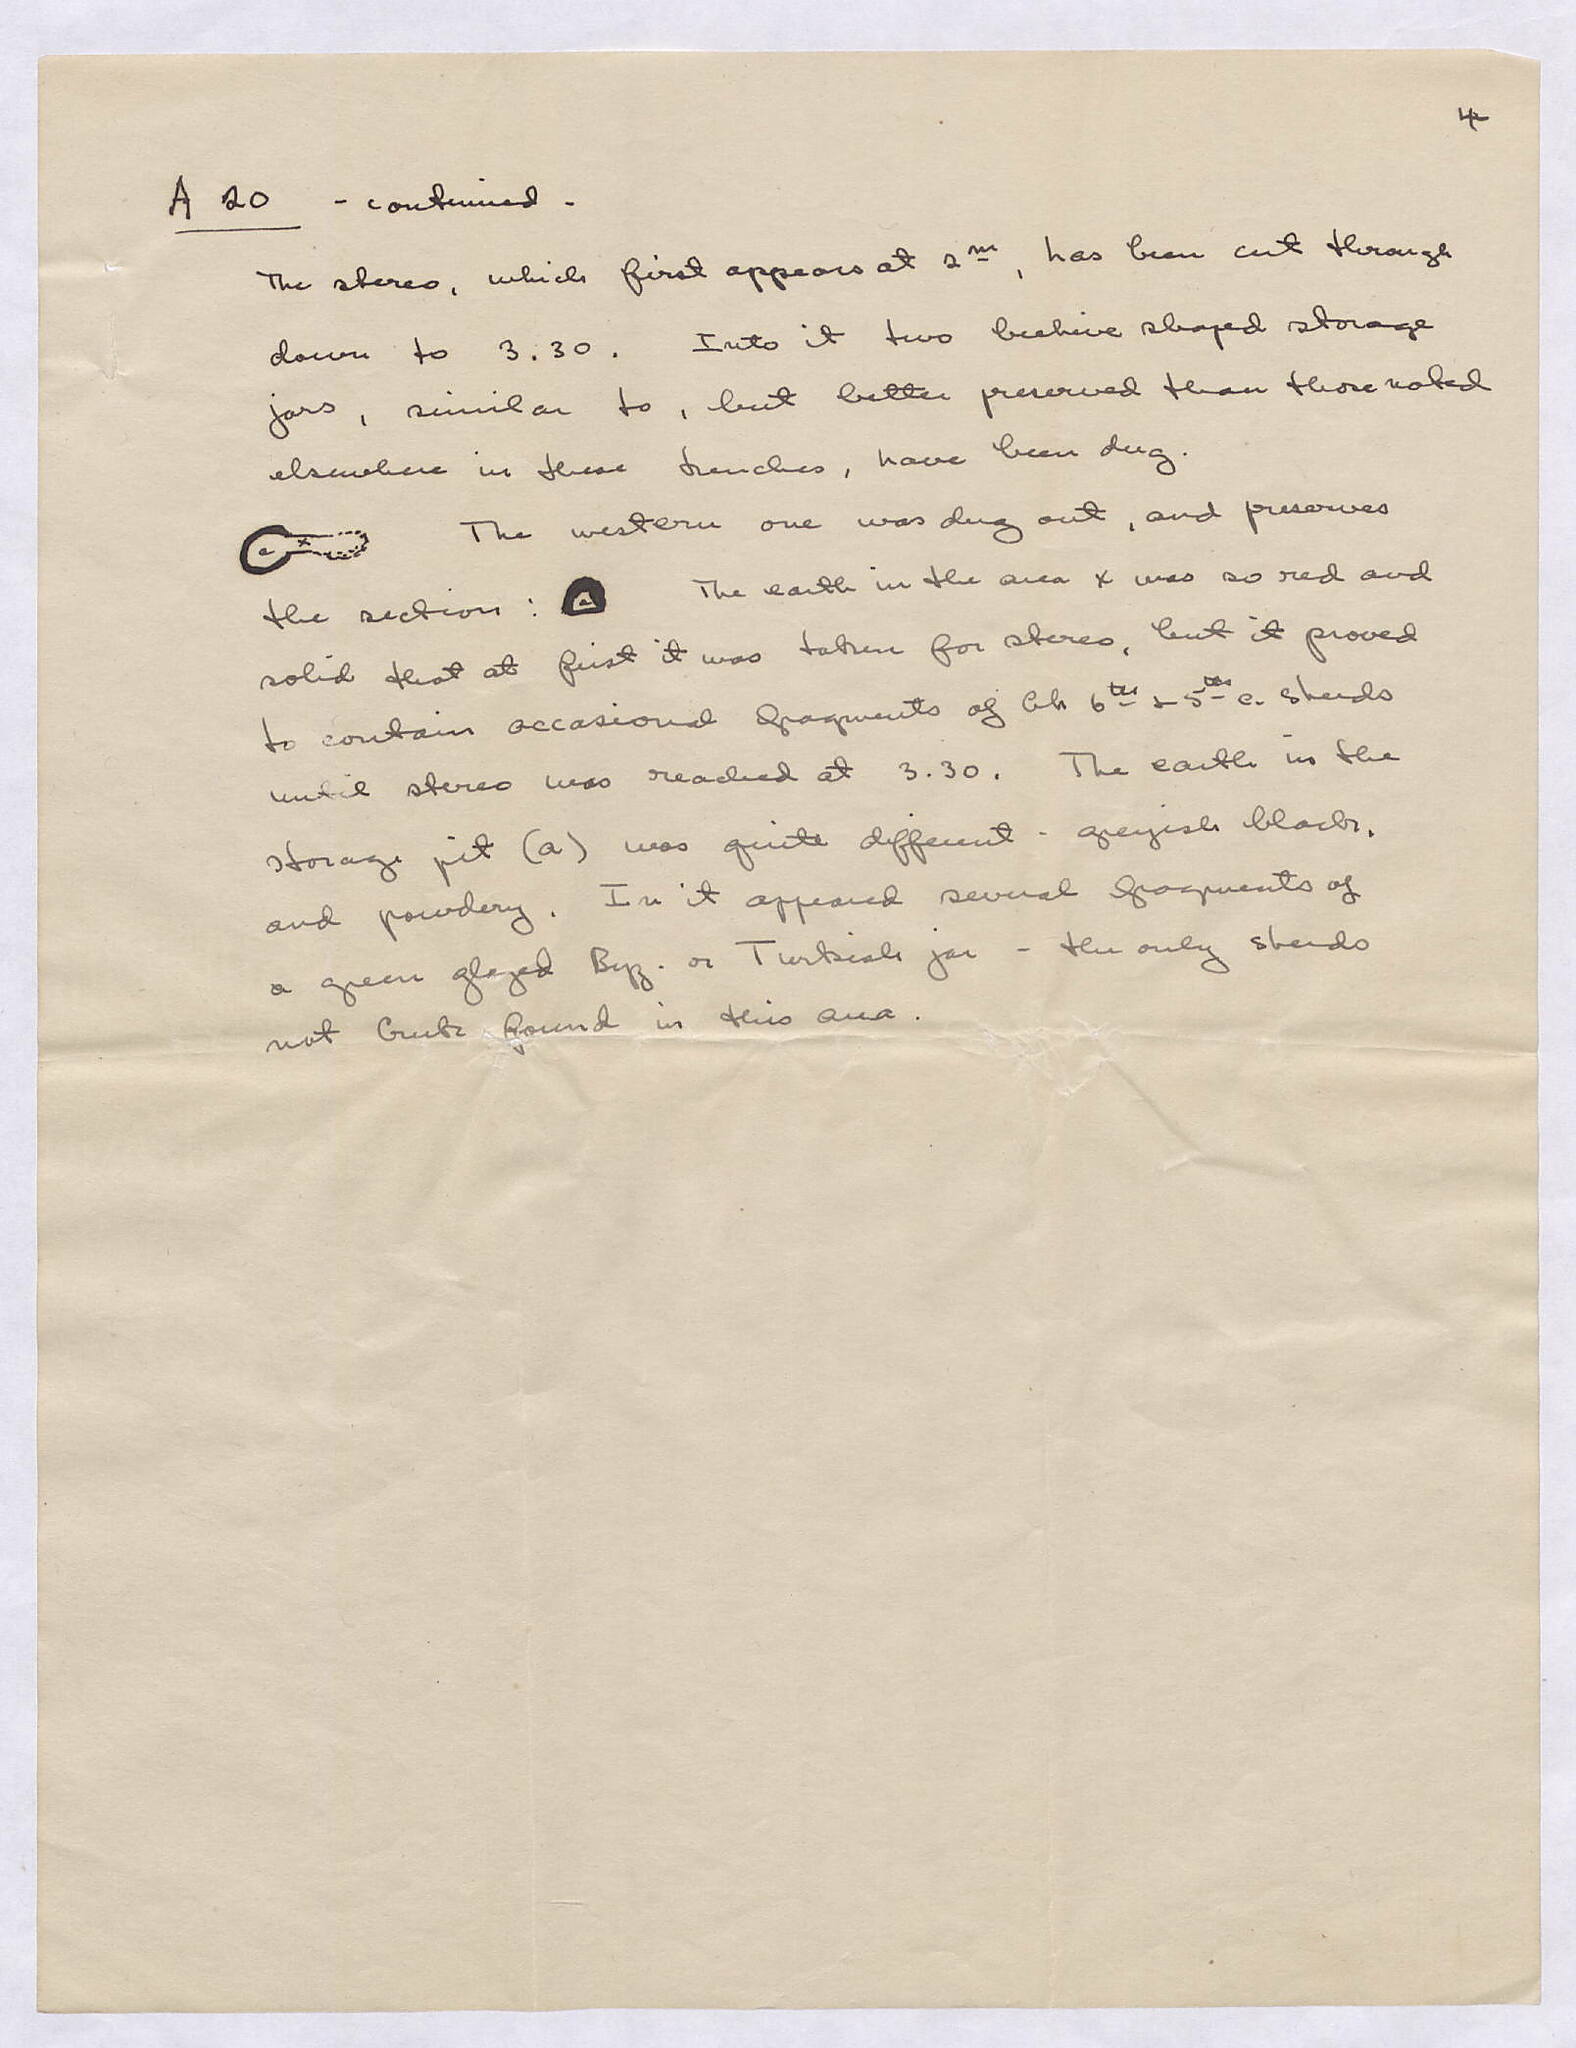 4
A 20 - continued -
The stereo, which first appears at 2m, has been cut through
down to 3.30. Into it two beehive shaped storage
jars, similar to, but better preserved than those noted
elsewhere in these trenches, have been dug.
a x The western one was dug out, and preserves
the section: a The earth in the area x was so red and
solid that at first it was taken for stereo, but it proved
to contain occasional fragments of 6th & 5th c. sherds
until stereo was reached at 3.30. The earth in the
storage pit (a) was quite different - greyish black,
and powdery. In it appeared several fragments of
a green glazed Byz. or Turkish jar - the only sherds
not found in this area.